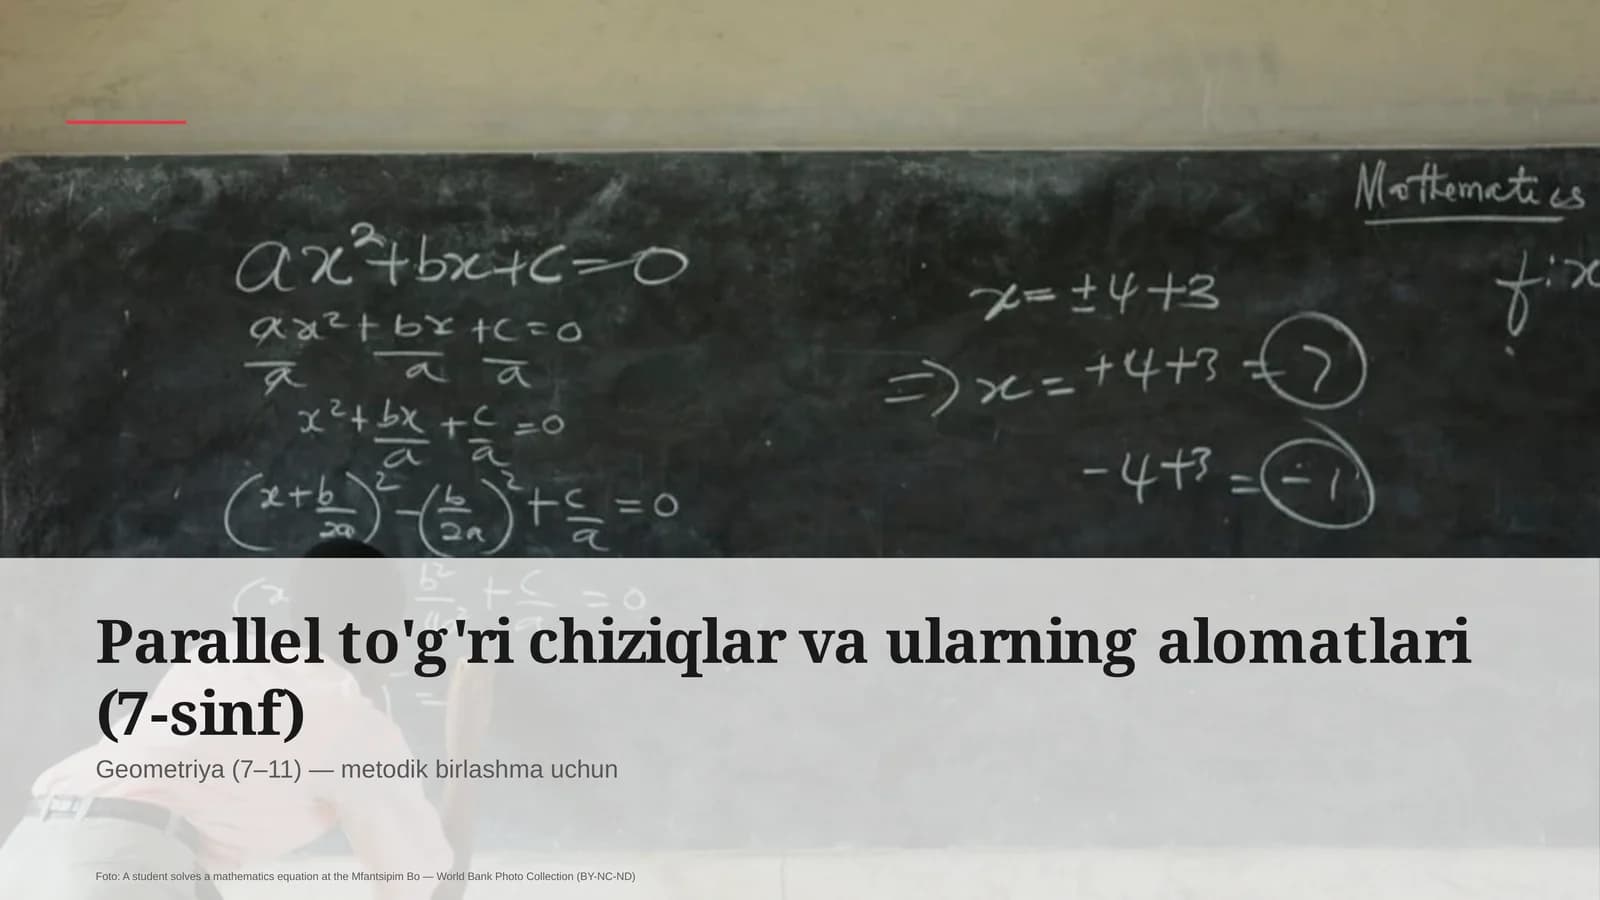 Mathematics
ax²+bx+c=0
ax²/a + bx/a + c/a =0
x²+bx/a+c/a=0
(x+b/2a)²-(b/2a)²+c/a=0
b² + c = 0
x=±4+3
⇒x=+4+3=7
-4+3=-1
Parallel to'g'ri chiziqlar va ularning alomatlari
(7-sinf)
Geometriya (7–11) — metodik birlashma uchun
Foto: A student solves a mathematics equation at the Mfantsipim Bo — World Bank Photo Collection (BY-NC-ND)